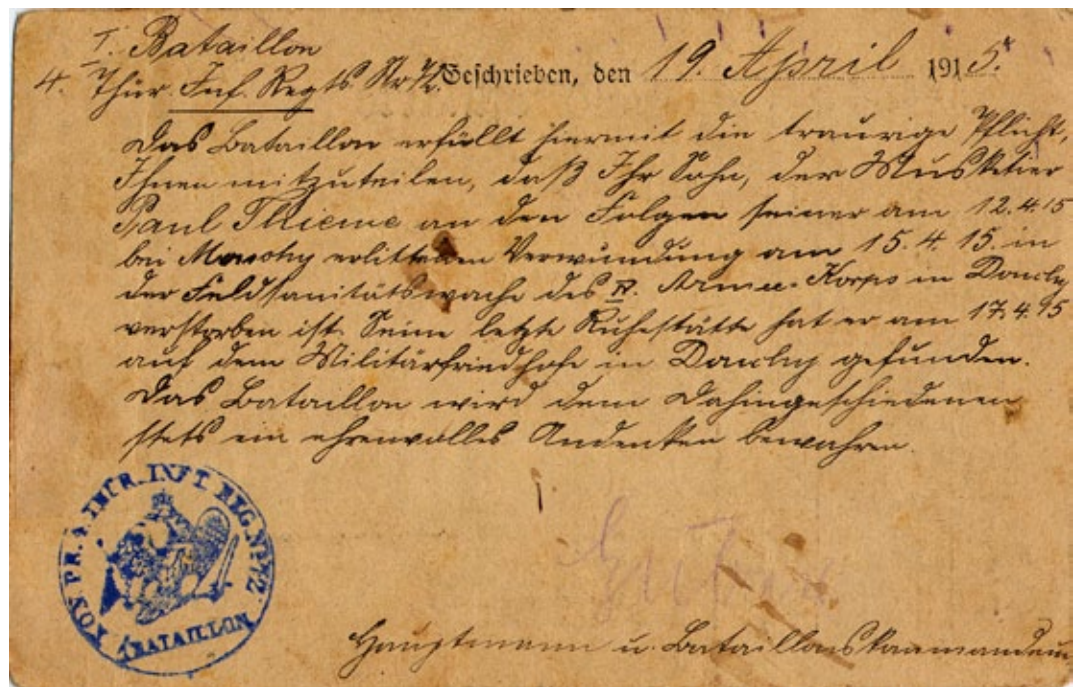 I. Bataillon
4. Thür. Inf. Regts. Nr. 72. Geschrieben, den 19. April 1915.
Das Bataillon erfüllt hiermit die traurige Pflicht,
Ihnen mitzuteilen, daß Ihr Sohn, der Musketier
Paul Thieme an den Folgen seiner am 12.4.15
bei Monchy erlittenen Verwundung am 15.4.15. in
der Feldsanitätswache des IV. Armee-Korps in Douchy
verstorben ist. Seine letzte Ruhestätte hat er am 17.4.15
auf dem Militärfriedhofe in Douchy gefunden.
Das Bataillon wird dem Dahingeschiedenen
stets ein ehrenvolles Andenken bewahren.
KÖN. PR. 4. THÜR. INFT. REG. No 72
I. BATAILLON
Hauptmann u. Bataillonskommandeur